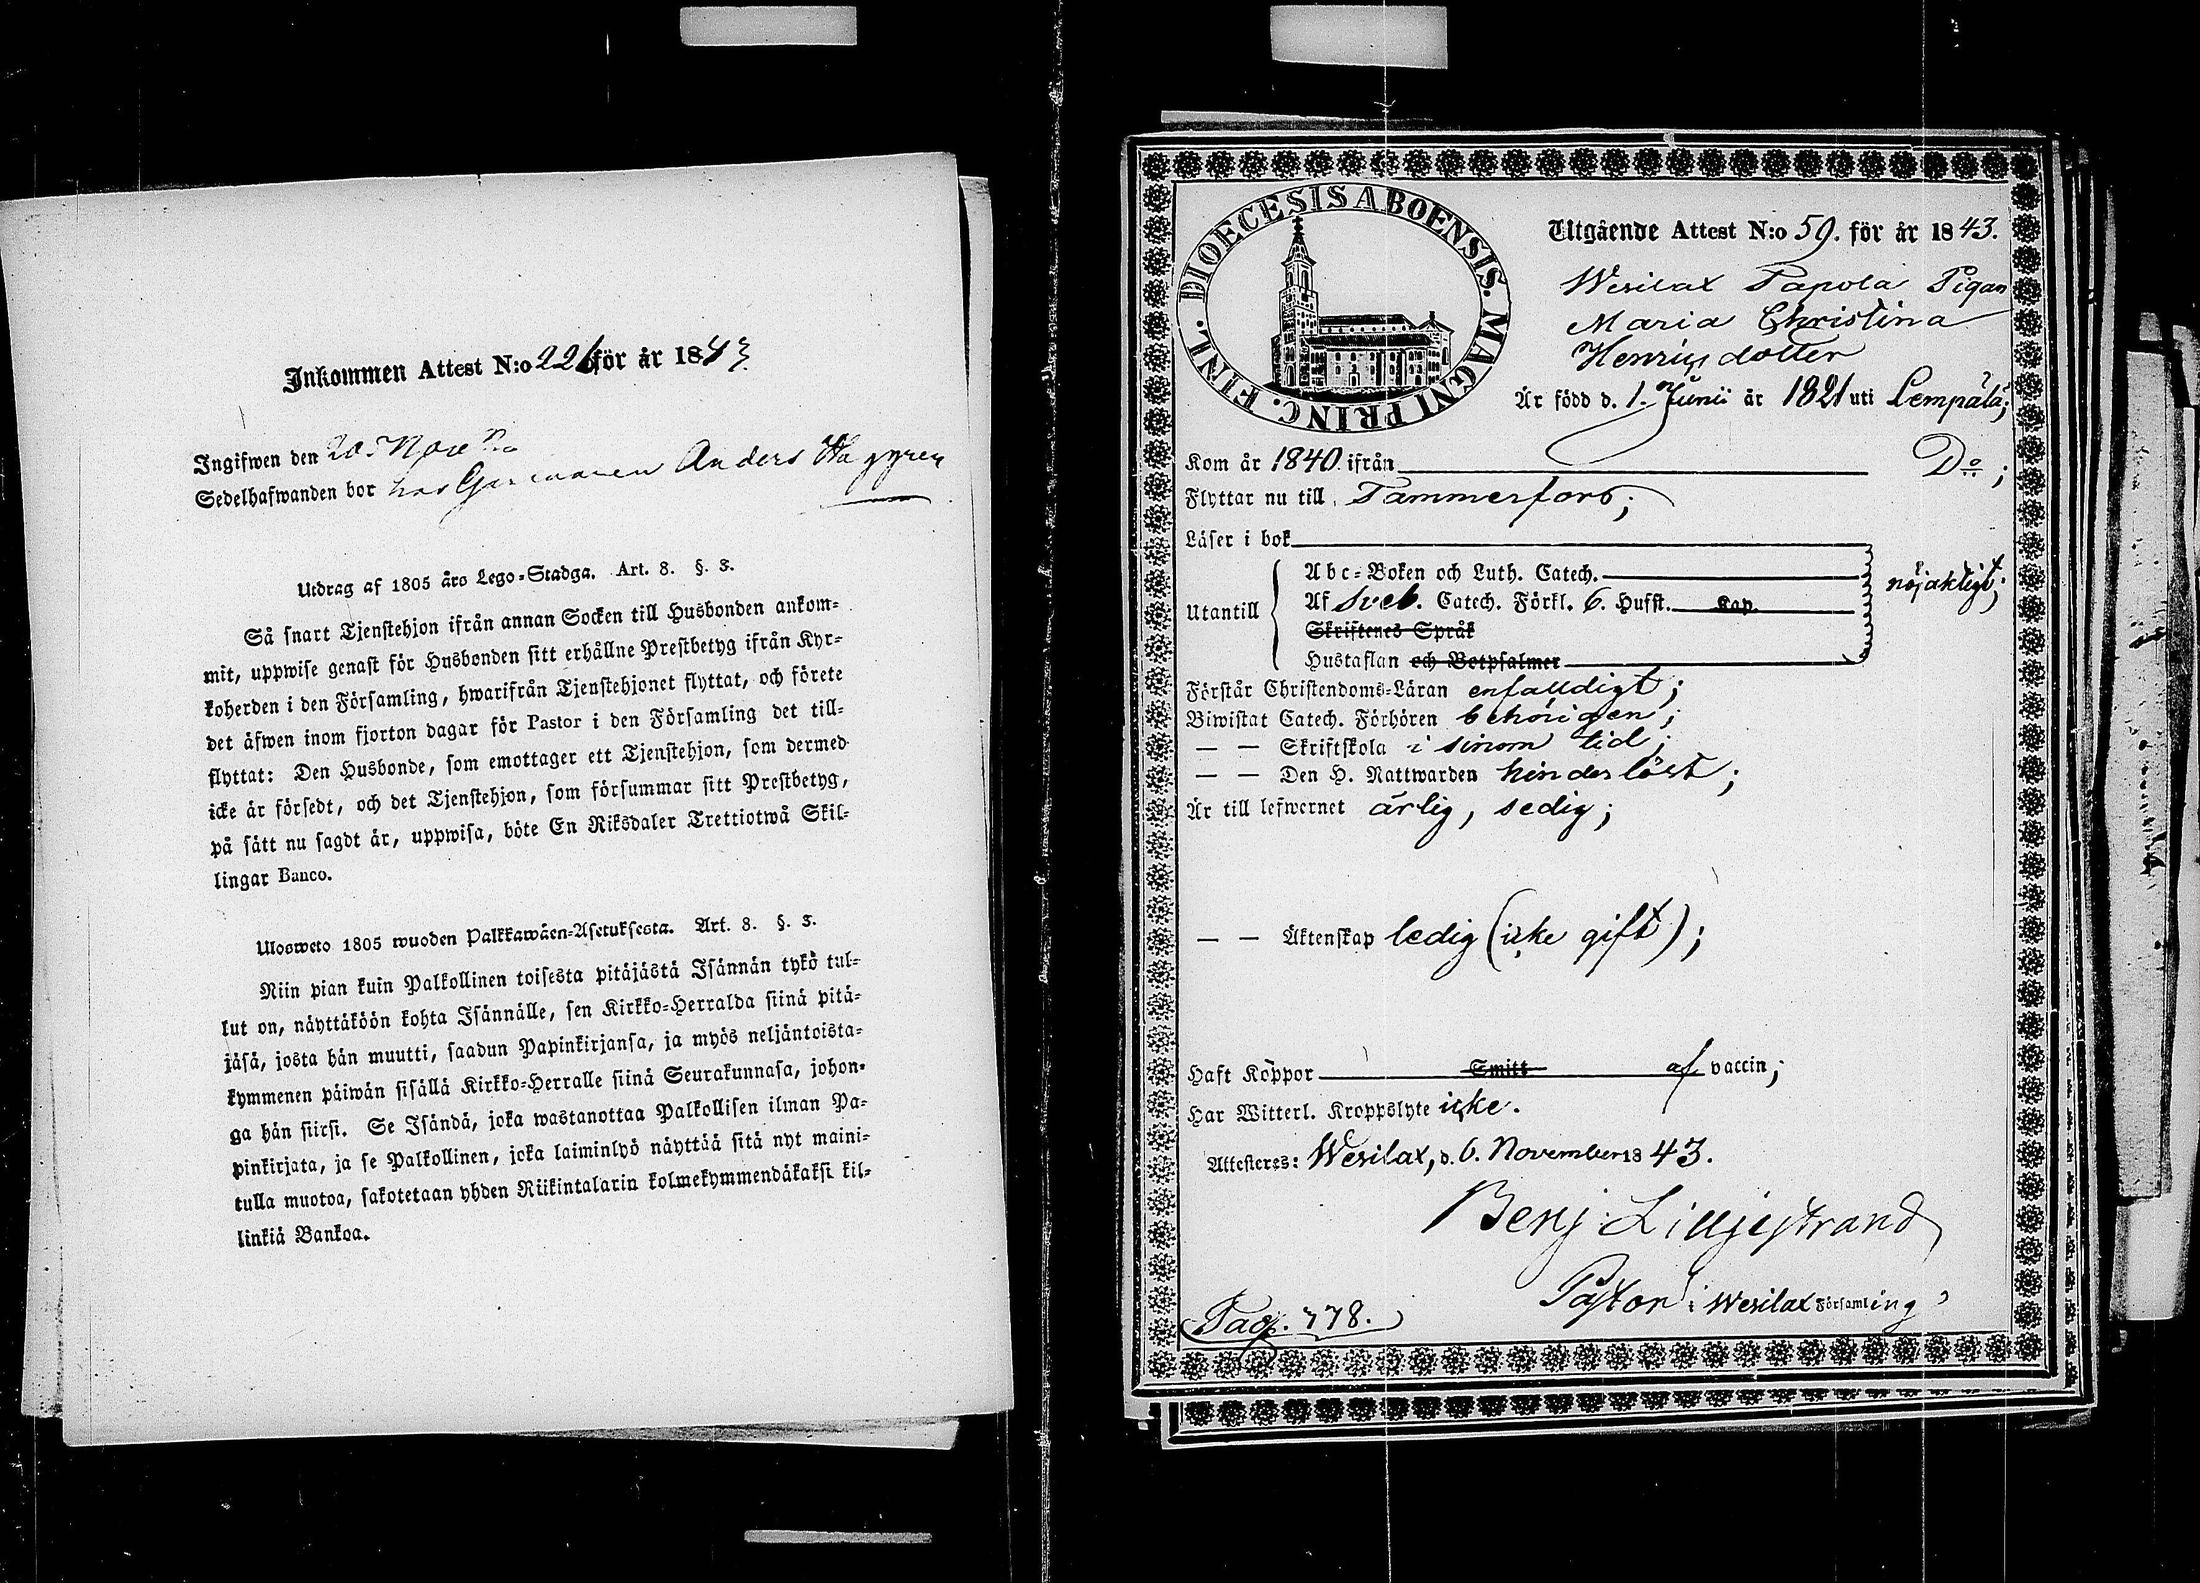 Inkommen Attest N:o 226 för år 1843.
Ingifwen den 20. Nov
Sedelhafwanden bor hos Garfwaren Anders Haggren
Utdrag af 1805 års Lego-Stadga. Art. 8. §. 3.
Så snart Tjenstehjon ifrån annan Socken till Husbonden ankom-
mit, uppwise genast för Husbonden sitt erhållne Prestbetyg ifrån Kyr-
koherden i den Församling, hwarifrån Tjenstehjonet flyttat, och förete
det äfwen inom fjorton dagar för Pastor i den Församling det till-
flyttat: Den Husbonde, som emottager ett Tjenstehjon, som dermed
icke är försedt, och det Tjenstehjon, som försummar sitt Prestbetyg,
på sätt nu sagdt är, uppwisa, böte En Riksdaler Trettiotwå Skil-
lingar Banco.
Ulosweto 1805 wuoden Palkkawäen-Asetuksesta. Art. 8. §. 3.
Niin pian kuin Palkollinen toisesta pitäjästä Isännän tykö tul-
lut on, näyttäköön kohta Isännälle, sen Kirkko-Herralda siinä pitä-
jäsä, josta hän muutti, saadun Papinkirjansa, ja myös neljäntoista-
kymmenen päiwän sisällä Kirkko-Herralle siinä Seurakunnasa, johon-
ga hän siirsi. Se Isändä, joka wastanottaa Palkollisen ilman Pa-
pinkirjata, ja se Palkollinen, joka laiminlyö näyttää sitä nyt maini-
tulla muotoa, sakotetaan yhden Riikintalarin kolmekymmendäkaksi kil-
linkiä Bankoa.
DIOECESIS ABOENSIS. MAGNI PRINC. FINL.
Utgående Attest N:o 59. för år 1843.
Wesilax Papola Pigan
Maria Christina
Henricsdotter
Är född d. 1. Junii år 1821 uti Lempälä;
Kom år 1840 ifrån D:o;
Flyttar nu till Tammerfors;
Läser i bok
Utantill
Abc-Boken och Luth. Catech.
Af Sveb. Catech. Förkl. 6. Hufst. Kap.
Skriftenes Språk
Hustaflan och Botpsalmer
nöjaktigt;
Förstår Christendoms-Läran enfalldigt;
Biwistat Catech. Förhören behörigen;
— — Skriftskola i sinom tid;
— — Den H. Nattwarden hinderlöst;
Är till lefwernet ärlig, sedig;
— — Äktenskap ledig (icke gift);
Haft Koppor Smitt af vaccin;
Har Witterl. Kroppslyte icke.
Attesteres: Wesilax, d. 6. November 1843.
Benj. Lilljestrand
Pastor i Wesilax Församling
Pag. 778.